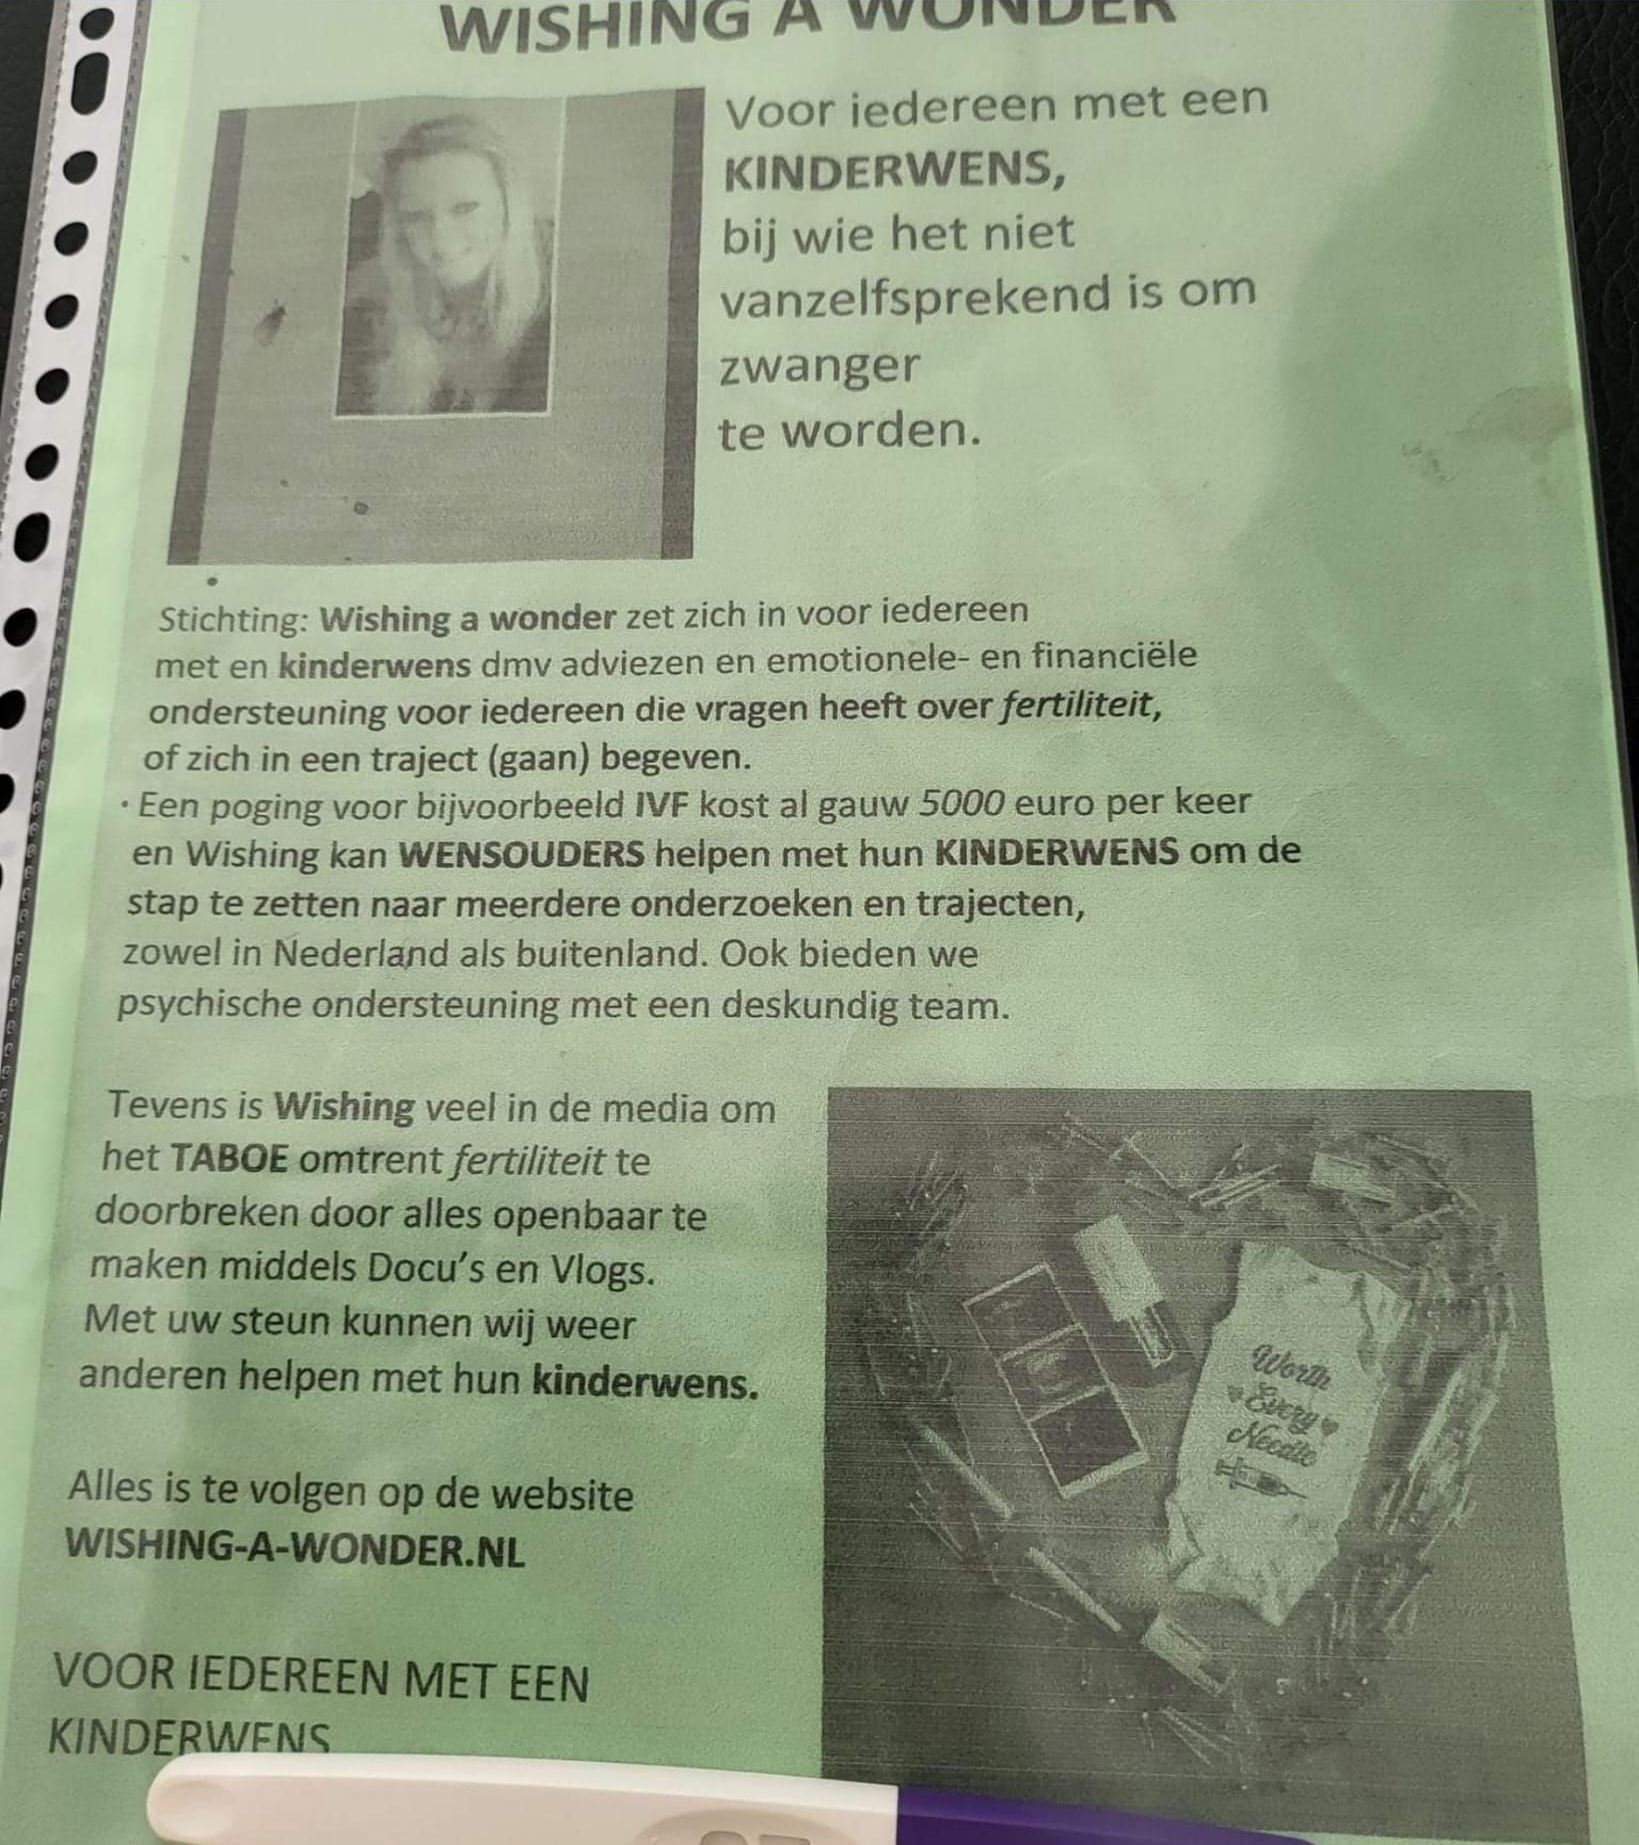 WISHING A WONDER
Voor iedereen met een
KINDERWENS,
bij wie het niet
vanzelfsprekend is om
zwanger
te worden.
Stichting: Wishing a wonder zet zich in voor iedereen
met en kinderwens dmv adviezen en emotionele- en financiële
ondersteuning voor iedereen die vragen heeft over fertiliteit,
of zich in een traject (gaan) begeven.
· Een poging voor bijvoorbeeld IVF kost al gauw 5000 euro per keer
en Wishing kan WENSOUDERS helpen met hun KINDERWENS om de
stap te zetten naar meerdere onderzoeken en trajecten,
zowel in Nederland als buitenland. Ook bieden we
psychische ondersteuning met een deskundig team.
Tevens is Wishing veel in de media om
het TABOE omtrent fertiliteit te
doorbreken door alles openbaar te
maken middels Docu's en Vlogs.
Met uw steun kunnen wij weer
anderen helpen met hun kinderwens.
Worth
Every
Needle
Alles is te volgen op de website
WISHING-A-WONDER.NL
VOOR IEDEREEN MET EEN
KINDERWENS